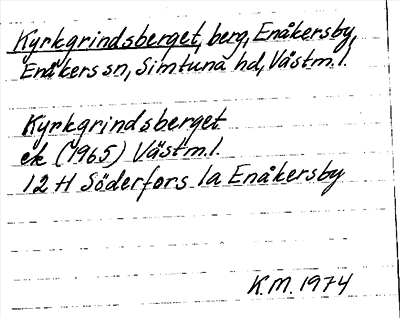 Kyrkgrindsberget, berg, Enåkersby,
Enåkers sn, Simtuna hd, Västm. l.
Kyrkgrindsberget
ek (1965) Västm. l.
12 H Söderfors 1a Enåkersby
K.M. 1974